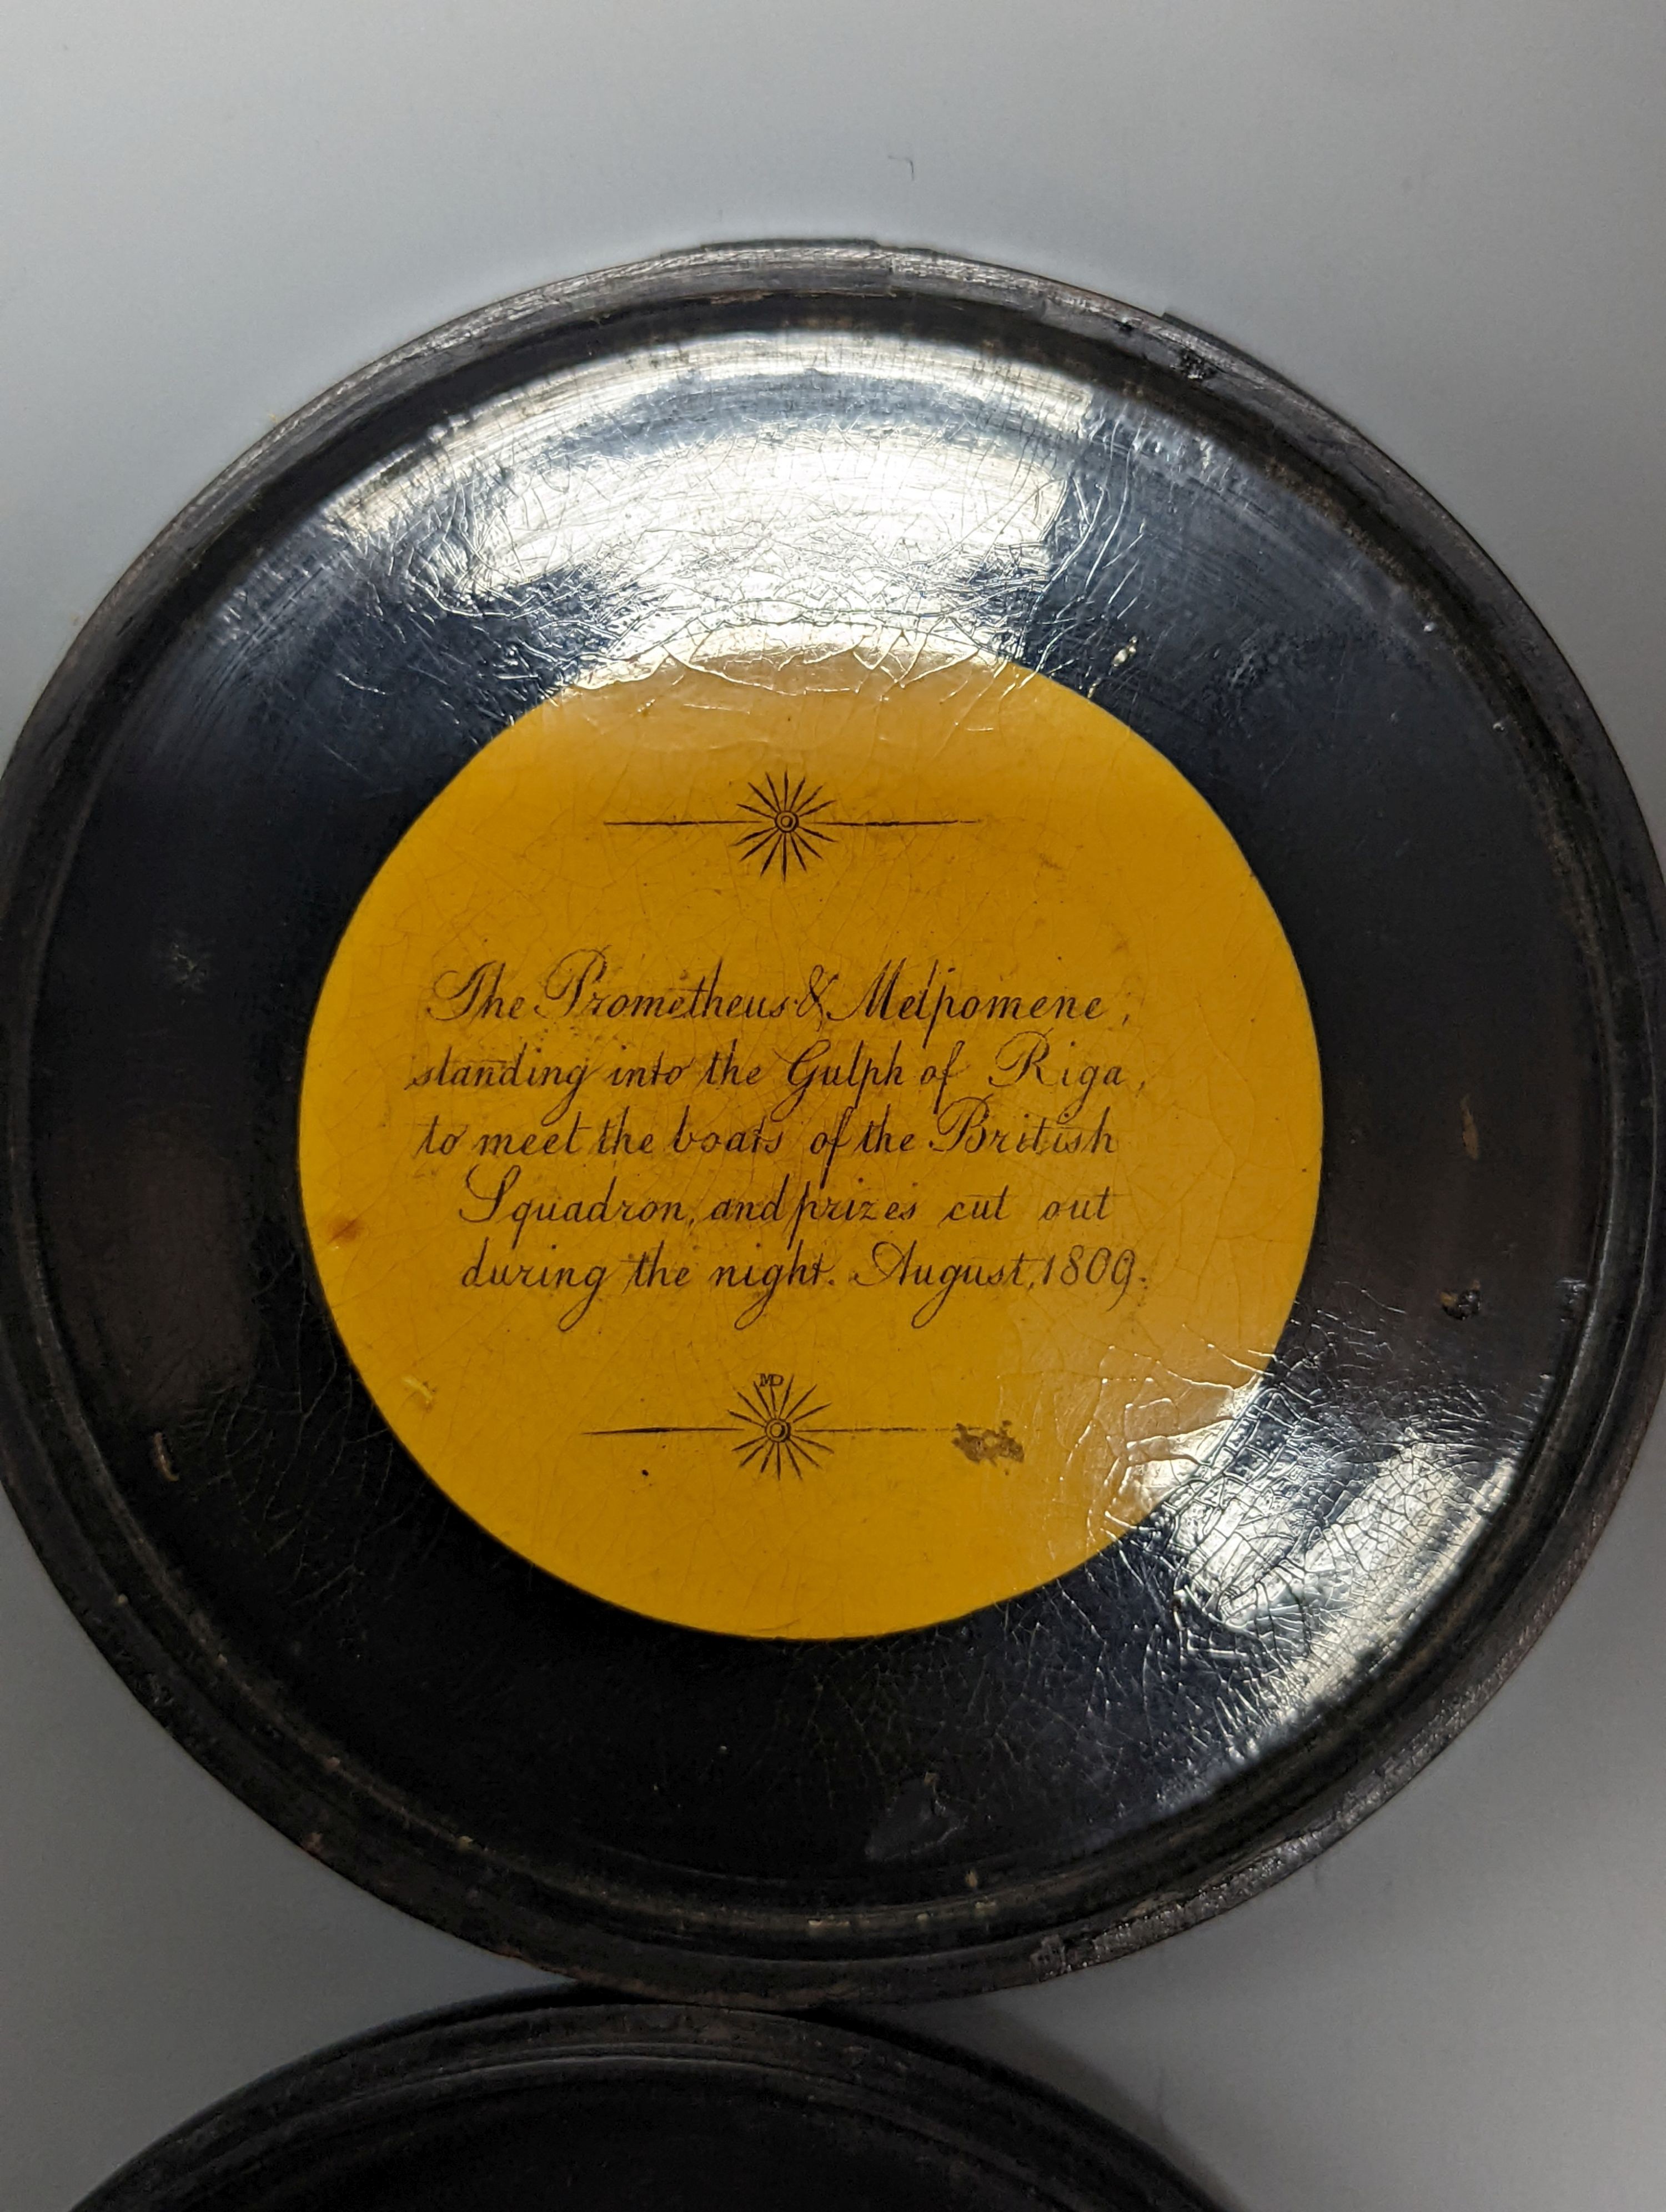 The Prometheus & Melpomene,
standing into the Gulph of Riga,
to meet the boats of the British
Squadron, and prizes cut out
during the night. August, 1809.
MD